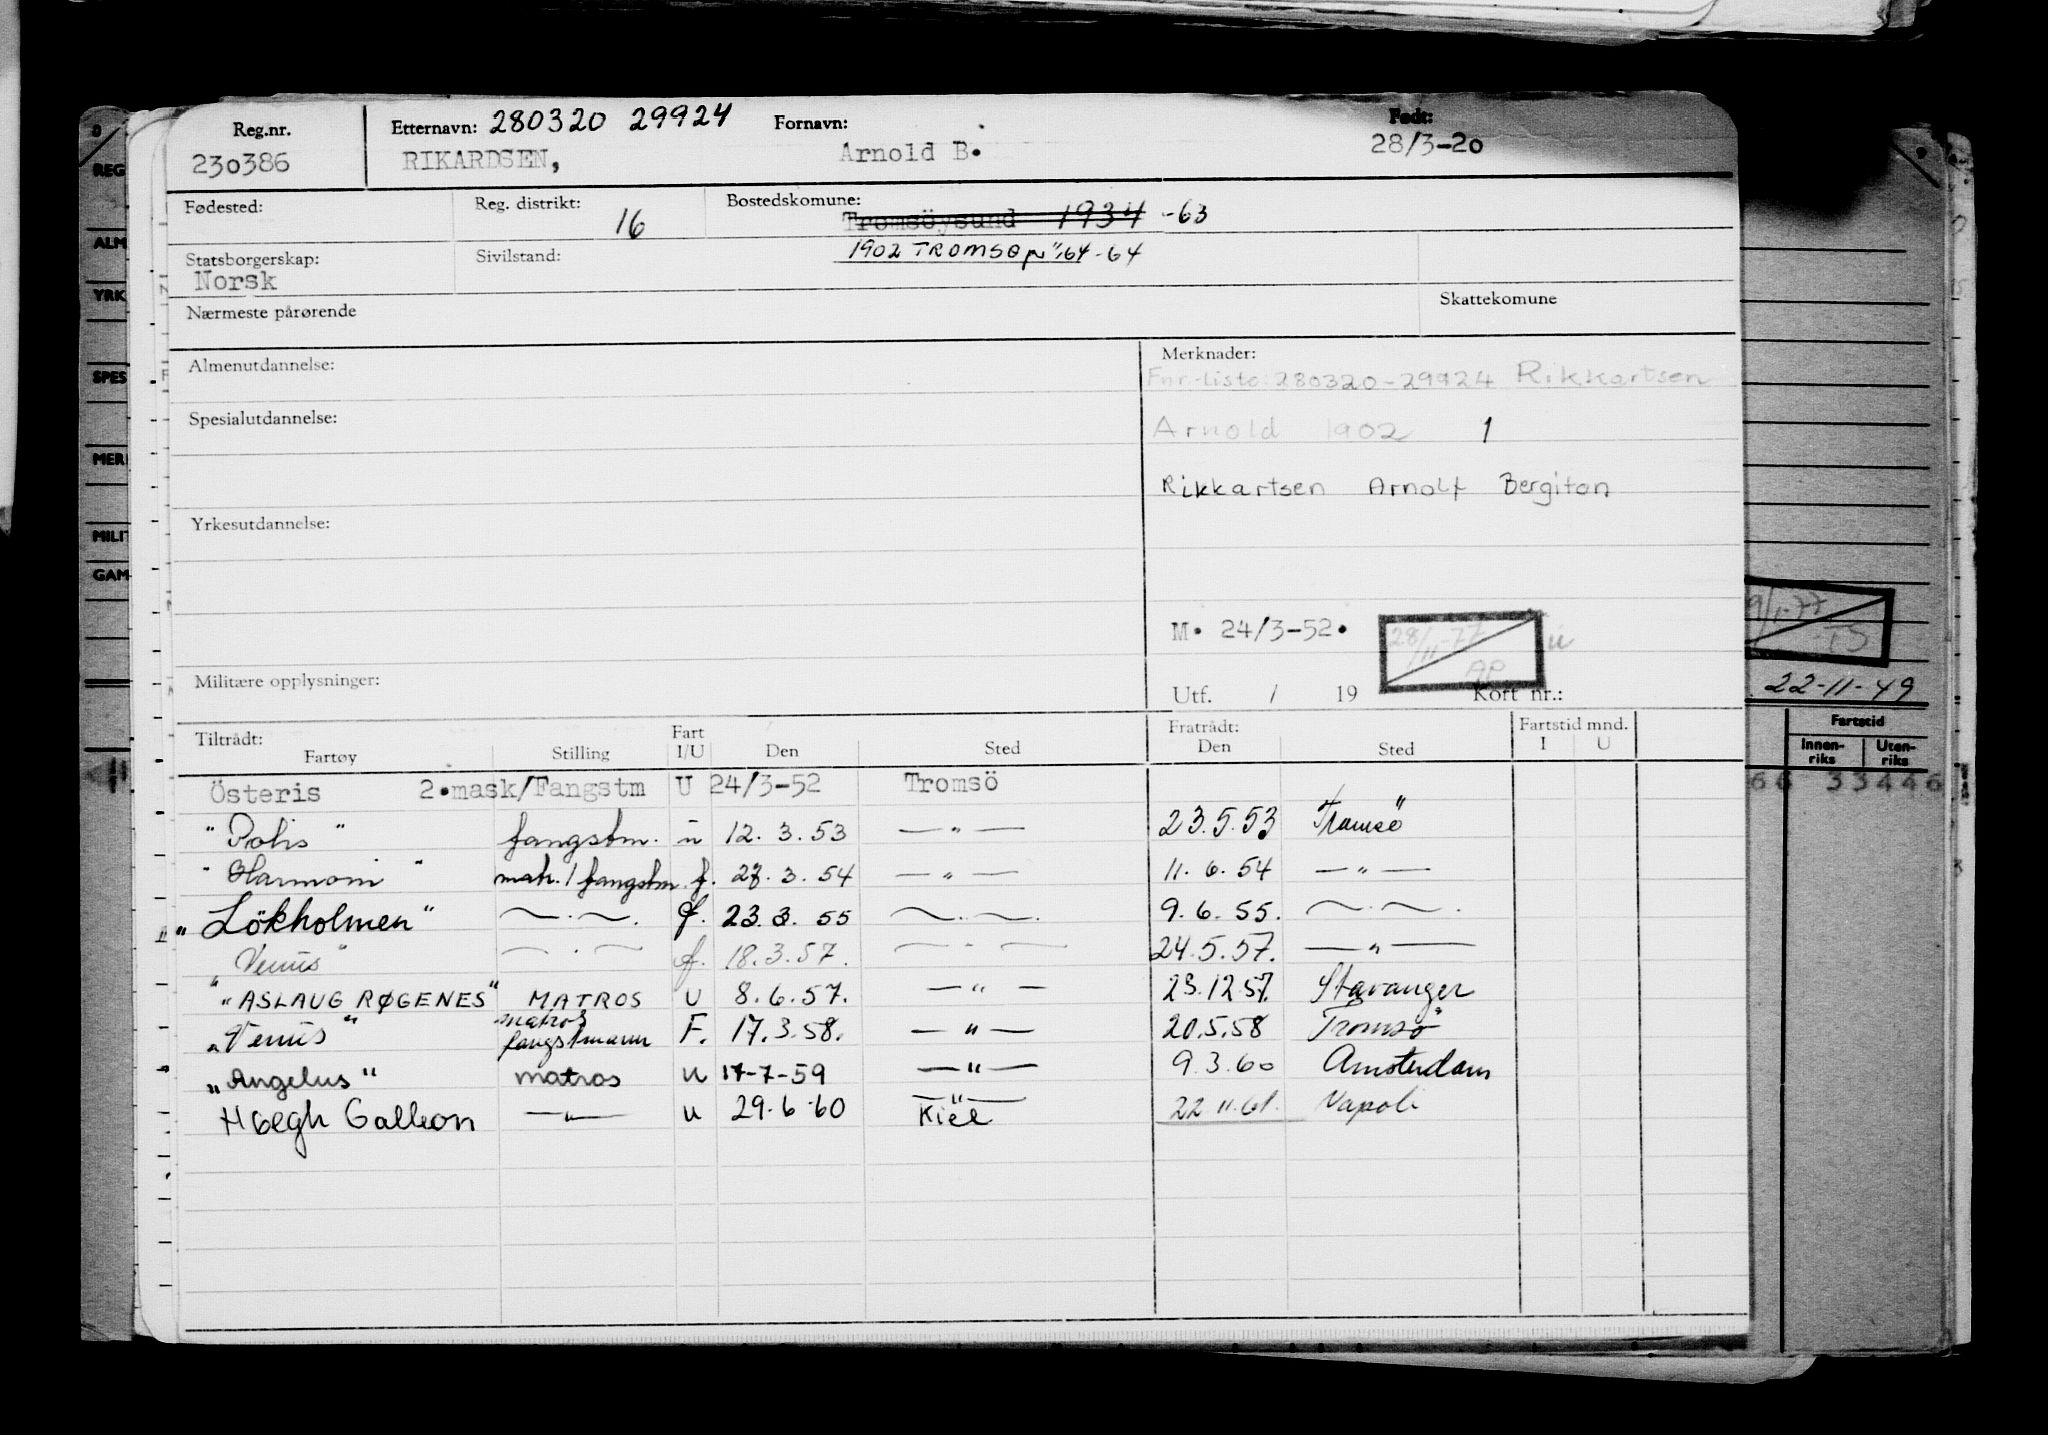 Reg.nr. Etternavn: 280320 29924 Fornavn: Født:
230386 RIKARDSEN, Arnold B. 28/3-20
Fødested: Reg. distrikt: 16 Bostedskomune: Tromsöysund 1934 -63
Statsborgerskap: Sivilstand: 1902 TROMSØ -64
Norsk
Nærmeste pårørende Skattekomune
Almenutdannelse: Merknader:
Fnr.-liste: 280320-29924 Rikkartsen
Spesialutdannelse: Arnold 1902 1
Rikkartsen Arnolf Bergiton
Yrkesutdannelse:
M. 24/3-52. 28/11-77 AP
Militære opplysninger: Utf. / 19 Kort nr.:
Tiltrådt: Fart Fratrådt: Fartstid mnd.
Fartøy Stilling I/U Den Sted Den Sted I U
Österis 2.mask/Fangstm U 24/3-52 Tromsö
"Polis" fangstm. u 12. 3. 53 — " — 23.5.53 Tromsö
"Harmoni" matr./fangstm f. 3. 54 — " — 11. 6. 54 — " —
"Lökholmen" — . — f. 23. 3. 55 — . — 9. 6. 55. — . —
"Venus" — . — f. 18.3.57. — " — 24.5.57. — " —
"ASLAUG RØGENES" MATROS U 8. 6. 57. — " — 23.12.57. Stavanger
"Venus" matros fangstmann F. 17. 3. 58. — " — 20.5.58 Tromsö
"Angelus" matros u 17-7-59 — " — 9. 3. 60 Amsterdam
Höegh Galleon — " — u 29.6.60 — " — Kiel 22.11.61. Napoli
REG
ALM
YRK
SPES
MER
MILIT
GAM
22-11-49
Fartstid
Innen-riks Uten-riks
66 33446